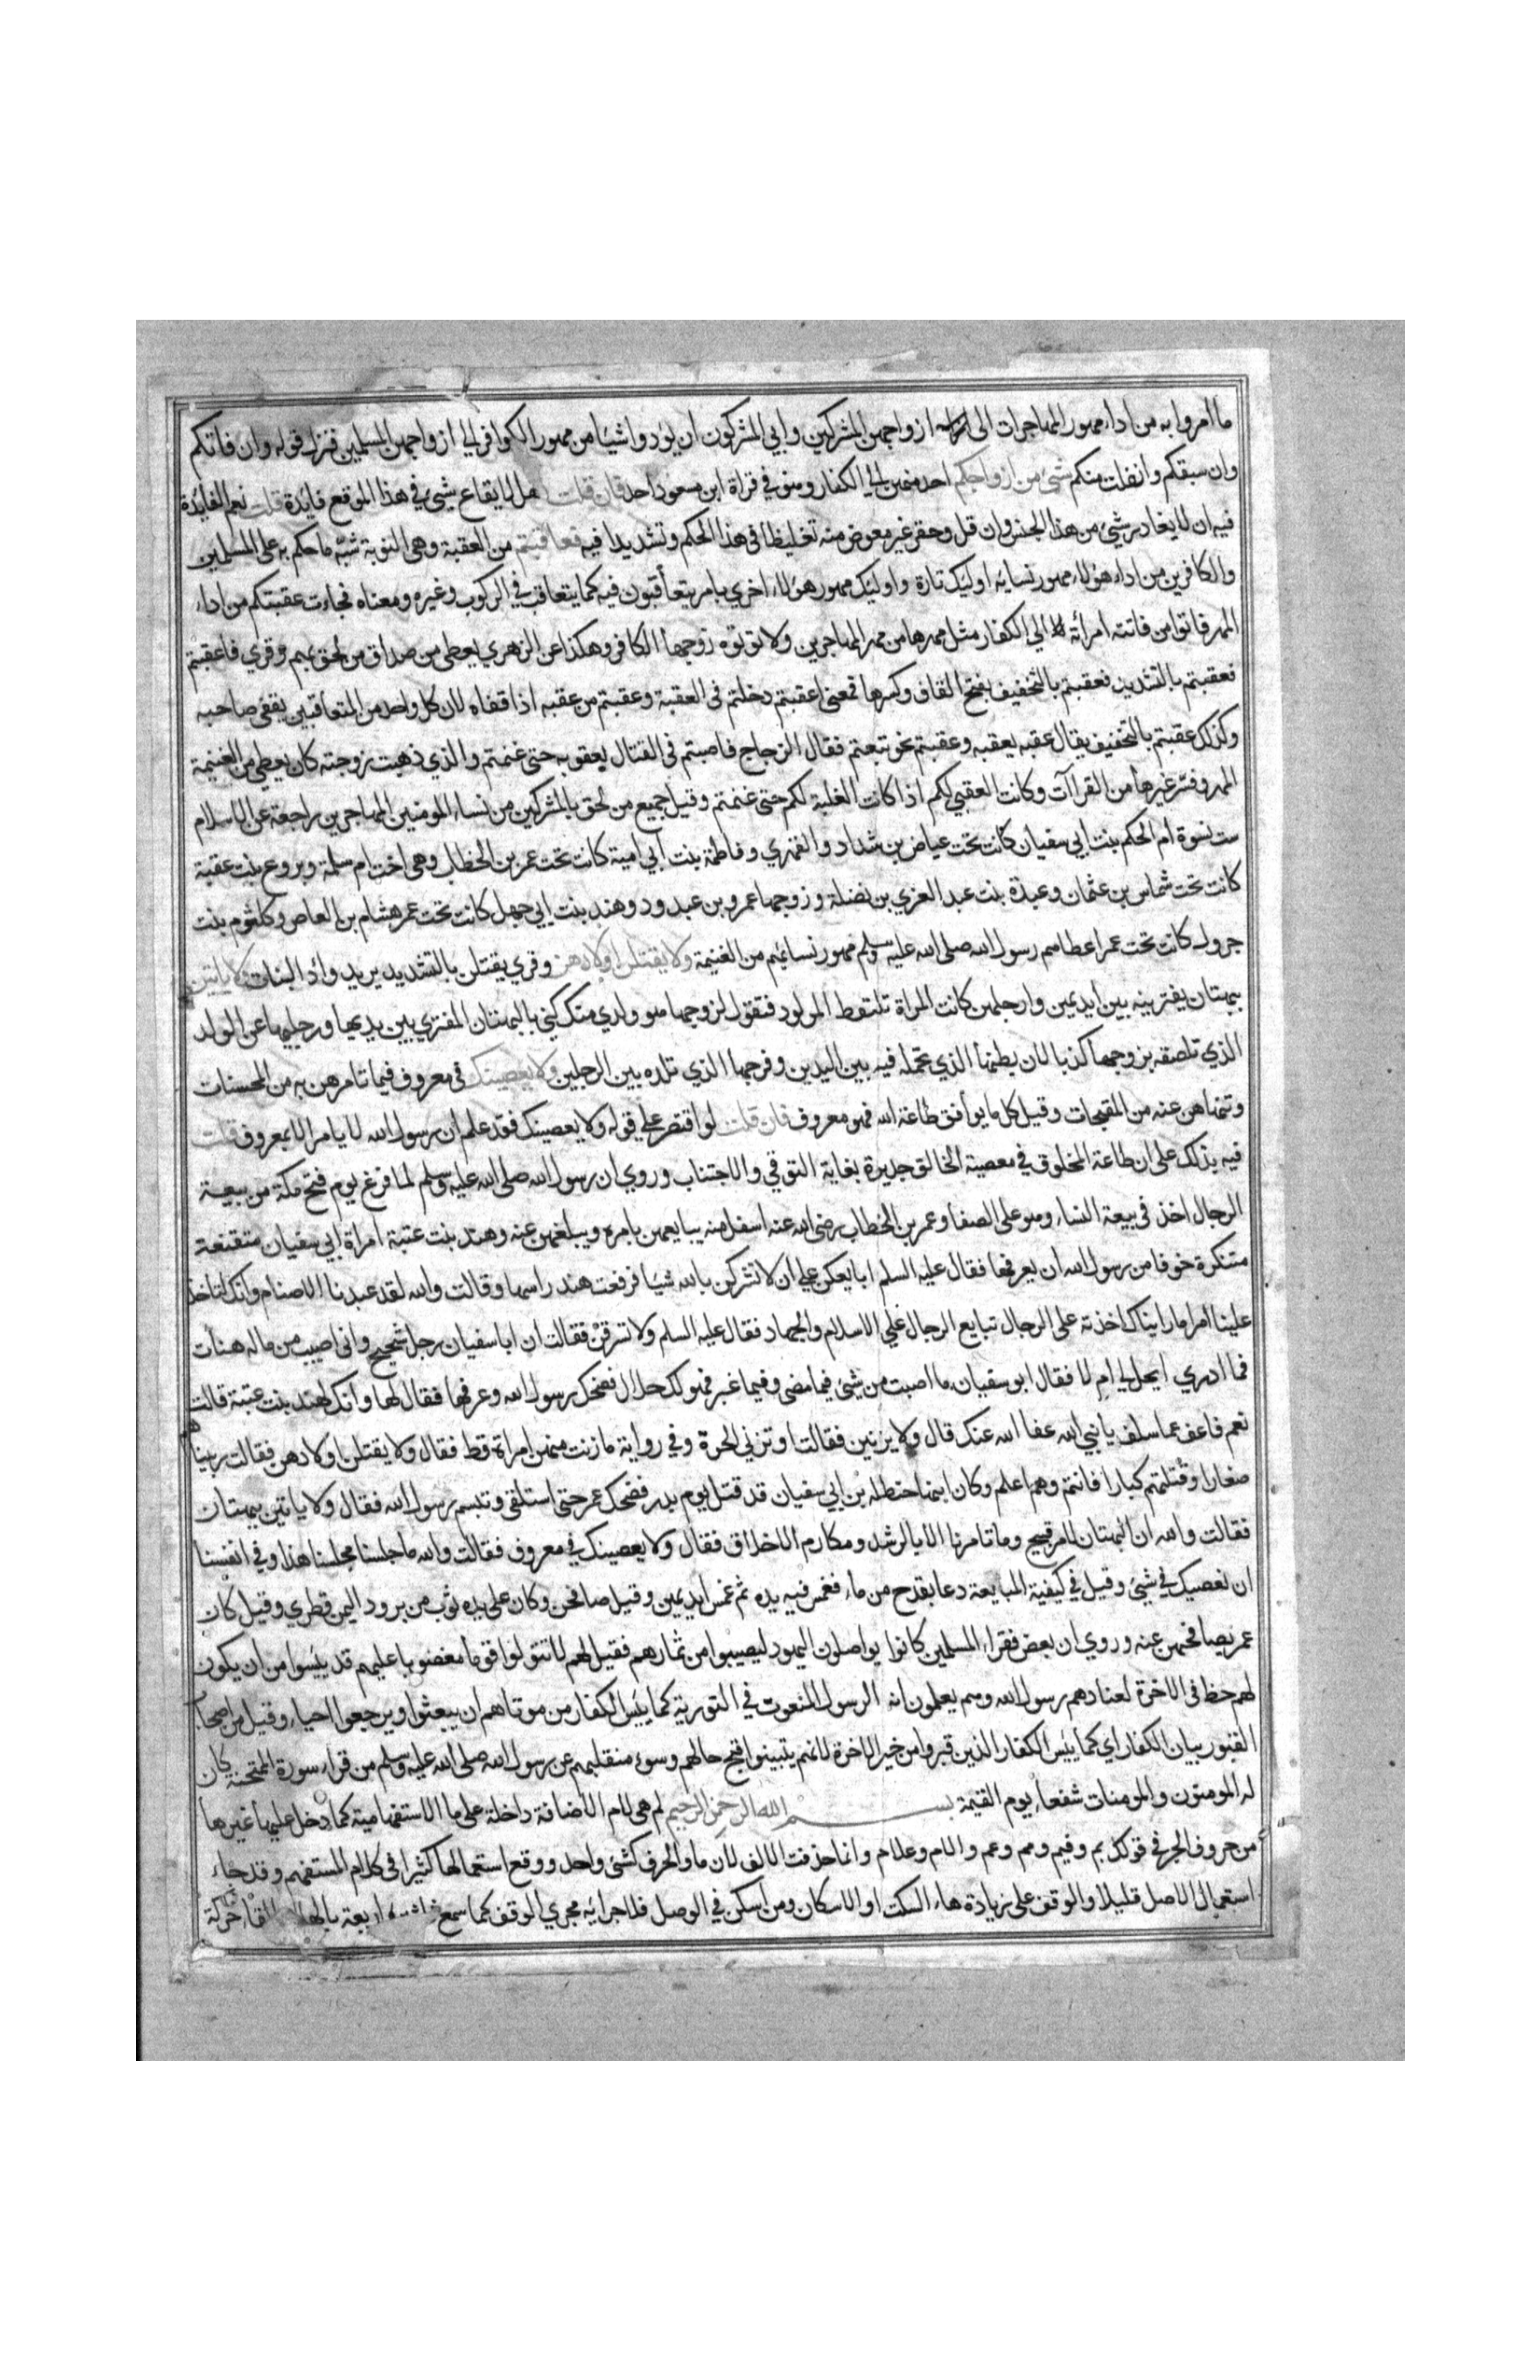 ما أمروا به من اداء مهور المهاجرات الى ازواجهن المشركين وابي المشركون ان يؤدوا شيئا من مهور الكوافر الي ازواجهن المسلمين فنزل قوله وان فاتكم
وان سبقكم وانفلت منكم شئ من ازواجكم احد منهن الي الكفار وهو في قراة ابن مسعود احد فان قلت هل لايقاع شئ في هذا الموقع فايدة قلت نعم الفايدة
فيه ان لا يغادر شئ من هذا الجنس وان قل وحقر غير معوض منه تغليظا في هذا الحكم وتشديدا فيه فعاقبتم من العقبة وهي النوبة شبه ما حكم به على المسلمين
والكافرين من اداء هؤلاء مهور نساء اوليك تارة واوليك مهور هؤلاء اخري بامر يتعاقبون فيه كما يتعاقب في الركوب وغيره ومعناه فجاءت عقبتكم من اداء
المهر فاتوا من فاتته امرأته الي الكفار مثل مهرها من مهر المهاجرين ولا تؤتوه زوجها الكافر وهكذا عن الزهري يعطى من صداق من لحق بهم وقري فاعقبتم
فعقبتم بالتشديد فعقبتم بالتخفيف بفتح القاف وكسرها فمعنى اعقبتم دخلتم في العقبة وعقبتم من عقبه اذا قفاه لان كل واحد من المتعاقبين يقفى صاحبه
وكذلك عقبتم بالتخفيف يقال عقبه يعقبه وعقبتم نحو تبعتم فقال الزجاج فاصبتم في القتال بعقوبه حتى غنمتم والذي ذهبت زوجته كان يعطي من الغنيمة
المهر وفسر غيرها من القراآت وكانت العقبي لكم اذا كانت الغلبة لكم حتى غنمتم وقيل جميع من لحق بالمشركين من نساء المومنين المهاجرين راجعة عن الاسلام
ست نسوة ام الحكم بنت ابي سفيان كانت تحت عياض بن شداد والفهري وفاطمة بنت ابي امية كانت تحت عمر بن الخطاب وهي اخت ام سلمة وبروع بنت عقبة
كانت تحت شماس بن عثمان وعبدة بنت عبد العزي بن نضلة وزوجها عمرو بن عبد ود وهند بنت ابي جهل كانت تحت عمر هشام بن العاص وكلثوم بنت
جرول كانت تحت عمر اعطاهم رسول الله صلى الله عليه وسلم مهور نسائهم من الغنيمة ولا يقتلن اولادهن وقري يقتلن بالتشديد يريد وأد البنات ولا ياتين
ببهتان يفترينه بين ايديهن وارجلهن كانت المراة تلتقط المولود فتقول لزوجها هو ولدي منك كني بالبهتان المفتري بين يديها ورجليها عن الولد
الذي تلصقه بزوجها كذبا لان بطنها الذي تحمله فيه بين اليدين وفرجها الذي تلده به بين الرجلين ولا يعصينك في معروف فيما تامرهن به من المحسنات
وتنهاهن عنه من المقبحات وقيل كل ما يوافق طاعة الله فهو معروف فان قلت لو اقتصر علي قوله ولا يعصينك فقد علم ان رسول الله لا يامر الا بمعروف قلت
فيه بذلك على ان طاعة المخلوق في معصية الخالق جديرة بغاية التوقي والاجتناب وروي ان رسول الله صلى الله عليه وسلم لما فرغ يوم فتح مكة من بيعة
الرجال اخذ في بيعة النساء وهو على الصفا وعمر بن الخطاب رضى الله عنه اسفل منه يبايعهن بامره ويبلغهن عنه وهند بنت عتبة امراة ابي سفيان متقنعة
متنكرة خوفا من رسول الله ان يعرفها فقال عليه السلم ابايعكن علي ان لا تشركن بالله شيئا فرفعت هند راسها وقالت والله لقد عبدنا الاصنام وانك لتاخذ
علينا امرا ما رايناك اخذته على الرجال تبايع الرجال علي الاسلام والجهاد فقال عليه السلم ولا تسرقن فقالت ان ابا سفيان رجل شحيح واني اصيب من ماله هنات
فما ادري ايحل لي ام لا فقال ابو سفيان ما اصبت من شئ فيما مضى وفيما غبر فهو لك حلال فضحك رسول الله وعرفها فقال لها وانك لهند بنت عتبة قالت
نعم فاعف عما سلف يا نبي الله عفا الله عنك قال ولا يزنين فقالت او تزني الحرة وفي رواية ما زنت منهن امراة قط فقال ولا يقتلن اولادهن فقالت ربيناهم
صغارا وقتلتهم كبارا فانتم وهم اعلم وكان ابنها حنظله بن ابي سفيان قد قتل يوم بدر فضحك عمر حتى استلقى وتبسم رسول الله فقال ولا ياتين ببهتان
فقالت والله ان البهتان لامر قبيح وما تامرنا الا بالرشد ومكارم الاخلاق فقال ولا يعصينك في معروف فقالت والله ما جلسنا مجلسنا هذا وفي انفسنا
ان نعصيك في شئ وقيل في كيفية المبايعة دعا بقدح من ماء فغمس فيه يده ثم غمس ايديهن وقيل صافحهن وكان على يده ثوب من برود اليمن قطري وقيل كان
عمر يصافحهن عنه وروي ان بعض فقراء المسلمين كانوا يواصلون اليهود ليصيبوا من ثمارهم فقيل لهم لا تتولوا قوما مغضوبا عليهم قد يئسوا من ان يكون
لهم حظ في الاخرة لعنادهم رسول الله وهم يعلمون انه الرسول المنعوت في التورية كما يئس الكفار من موتاهم ان يبعثوا ويرجعوا احياء وقيل من اصحاب
القبور بيان الكفار اي كما يئس الكفار الذين قبروا من خير الاخرة لانهم يتبينوا قبح حالهم وسوء منقلبهم عن رسول الله صلى الله عليه وسلم من قراء سورة الممتحنة كان
له المومنون والمومنات شفعاء يوم القيمة بسم الله الرحمن الرحيم لم هي لام الاضافة داخلة على ما الاستفهامية كما دخل عليها غيرها
من حروف الجر في قولك بم وفيم ومم وعم والام وعلام وانما حذفت الالف لان ما والحرف كشئ واحد ووقع استعمالها كثيرا في كلام المستفهم وقد جاء
استعمال الاصل قليلا والوقف على زيادة هاء السكت او الاسكان ومن اسكن في الوصل فلاجرائه مجري الوقف كما سمع اربعة بالهاء القاء حركة